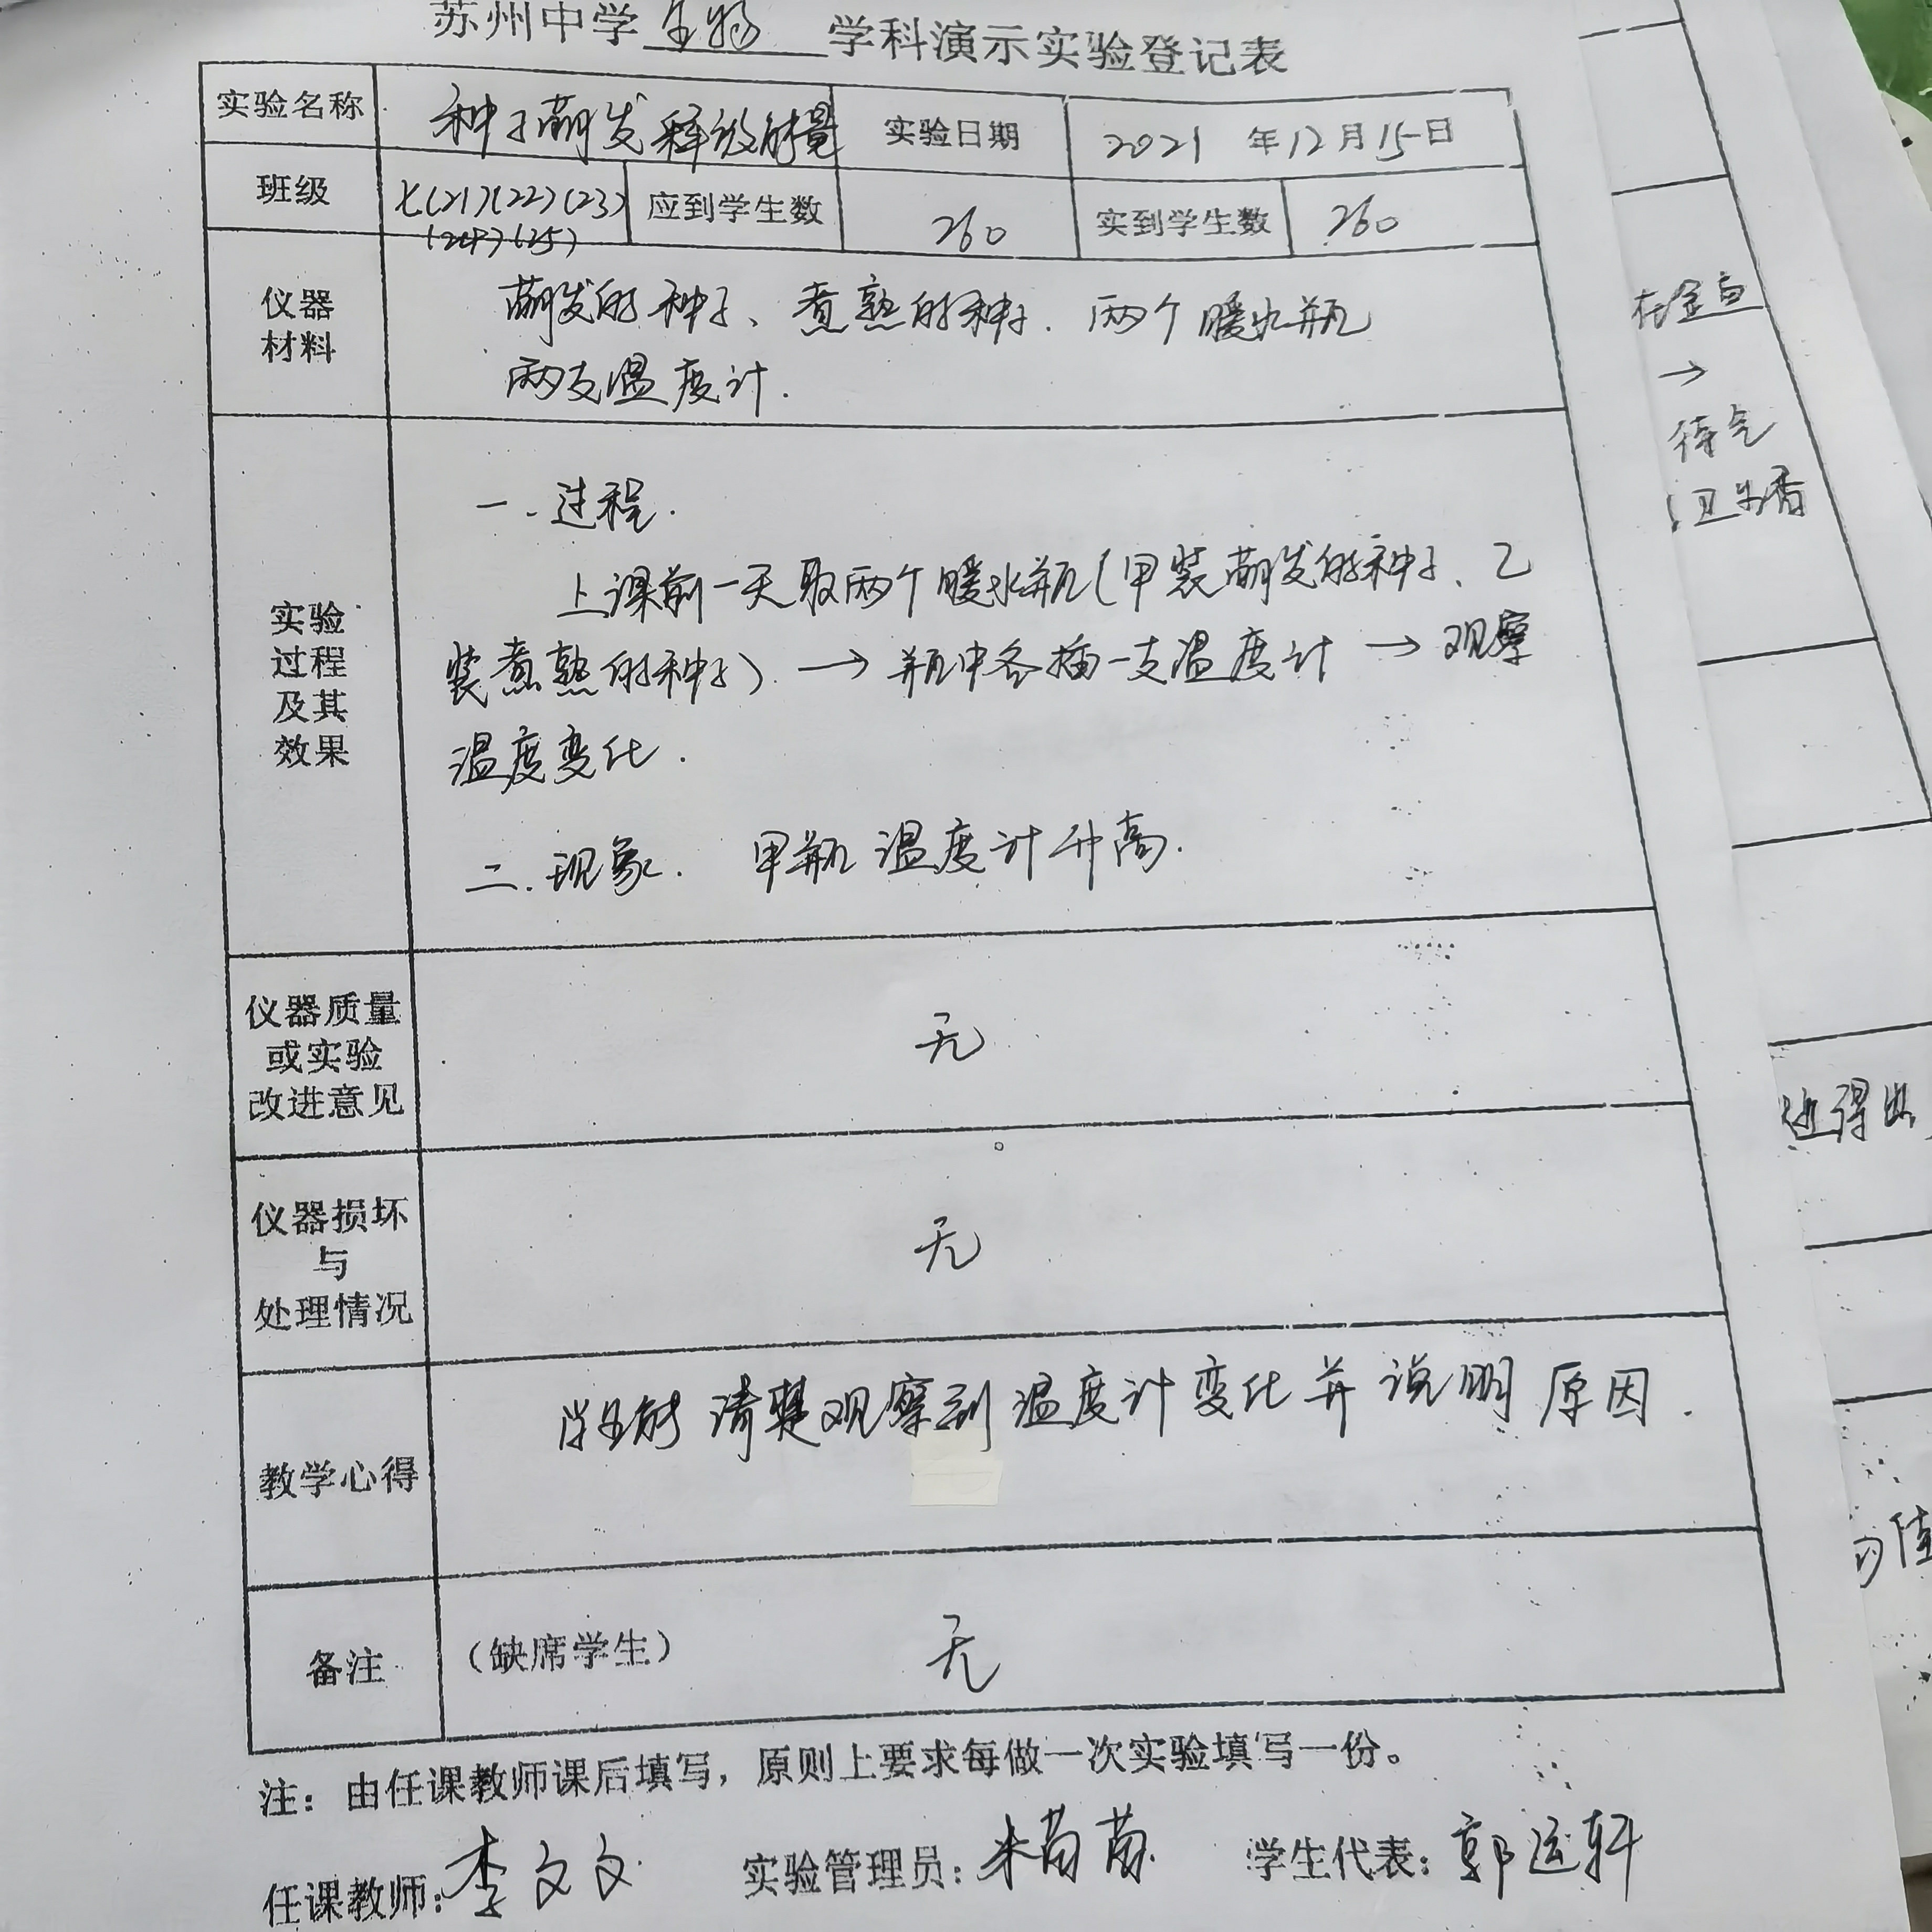 苏州中学生物学科演示实验登记表
实验名称 种子萌发释放能量 实验日期 2021年12月15日
班级 七(21)(22)(23)(24)(25) 应到学生数 260 实到学生数 260
仪器
材料
萌发的种子、煮熟的种子.两个暖水瓶
两支温度计.
实验
过程
及其
效果
一.过程.
上课前一天取两个暖水瓶(甲装萌发的种子、乙
装煮熟的种子)→瓶中各插一支温度计→观察
温度变化.
二.现象. 甲瓶温度计升高.
仪器质量
或实验
改进意见
无
仪器损坏
与
处理情况
无
教学心得
学生能清楚观察到温度计变化并说明原因.
备注 (缺席学生) 无
注：由任课教师课后填写，原则上要求每做一次实验填写一份。
任课教师：李文文 实验管理员：朱苗苗 学生代表：郭运轩
→
得出